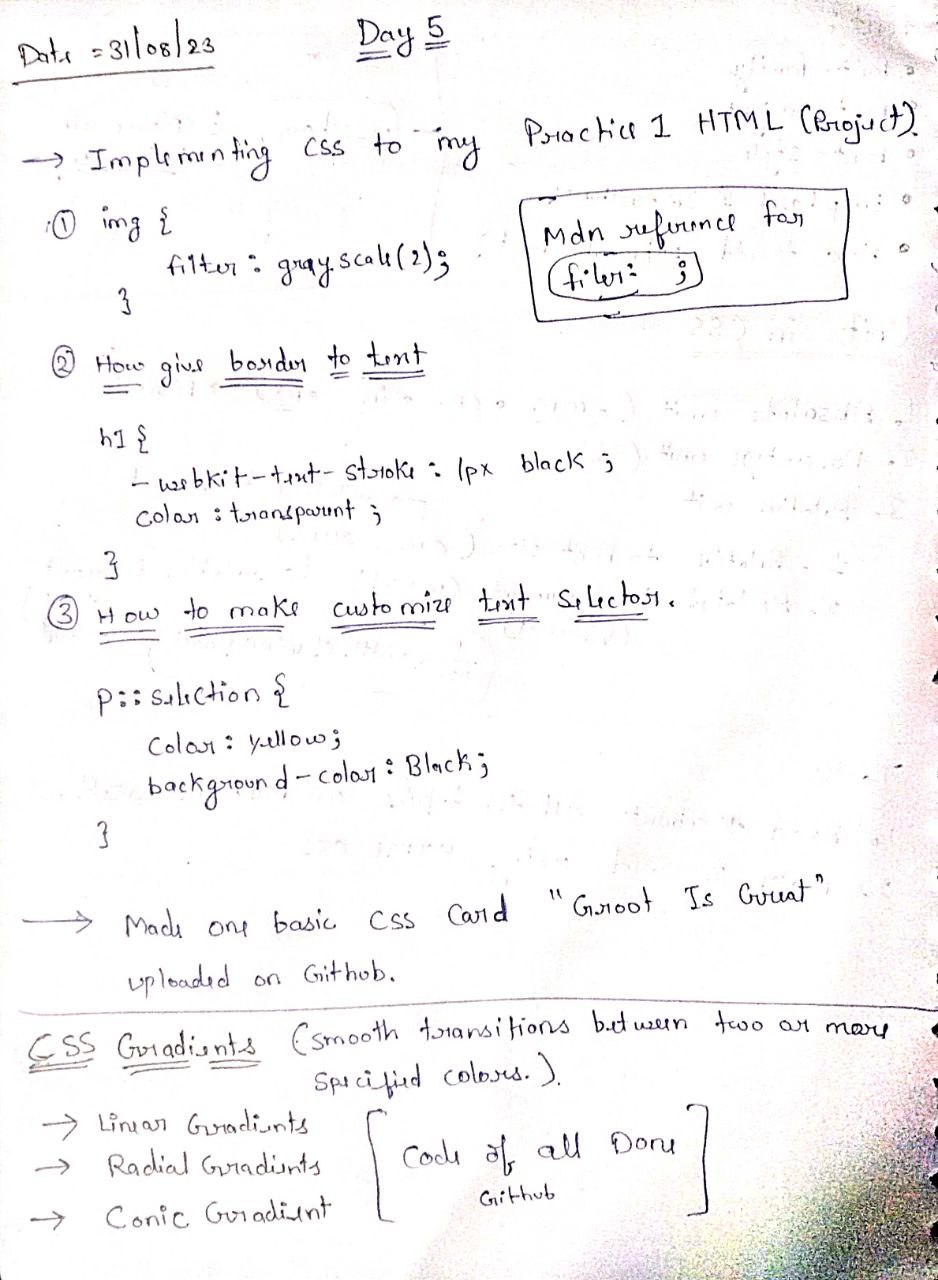 Date = 31/08/23
Day 5
→ Implementing CSS to my Practice 1 HTML (Project).
① img {
filter : grayscale(2);
}
Mdn reference for
filer: ;
② How give border to text
h1 {
-webkit-text-stroke : 1px black ;
color : transparent ;
}
③ How to make customize text selector.
p::selection {
Color : yellow;
background-color : Black;
}
→ Made one basic CSS Card "Groot Is Great"
uploaded on Github.
CSS Gradients (smooth transitions between two or more
specified colors.).
→ Linear Gradients
→ Radial Gradients
→ Conic Gradient
[ Code of all Done ]
Github